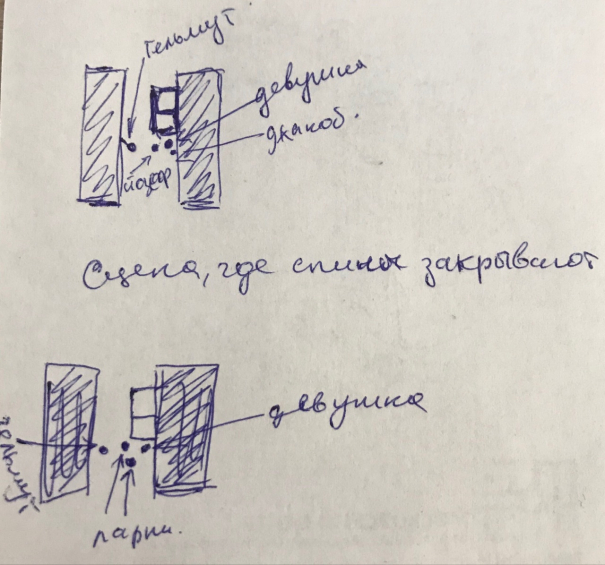 Гельмут
девушка
джакоб.
йозеф
Сцена, где спины закрывают
девушка
гельмут
парни.